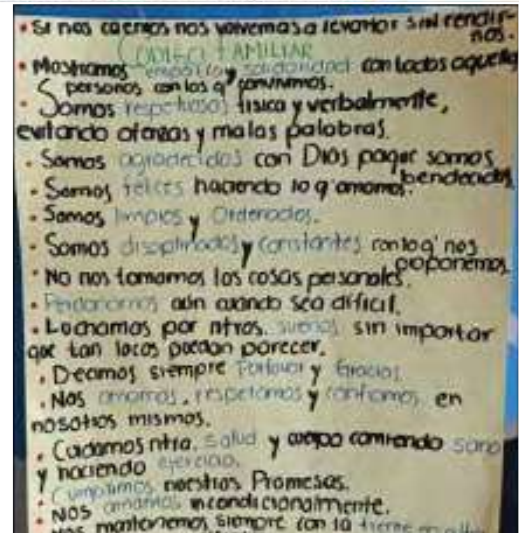 • Si nos caemos nos volvemos a levantar sin rendir-
nos.
CODIGO FAMILIAR
• Mostramos empatia y solidaridad con todos aquella
personas con los q' convivimos.
• Somos respetuosos fisica y verbalmente,
evitando ofenzas y malas palabras.
• Somos agradecidos con Dios porque somos
bendecidos
• Somos felices haciendo lo q' amamos.
• Somos limpios y Ordenados.
• Somos disciplinados y constantes con lo q' nos
proponemos
• No nos tomamos las cosas personales.
• Perdonamos aún cuando sea dificil.
• Luchamos por ntros. sueños sin importar
que tan locos puedan parecer.
• Decimos siempre Porfavor y Gracias
• Nos amamos, respetamos y confiamos en
nosotros mismos.
• Cuidamos ntra. salud y cuerpo comiendo sano
y haciendo ejercicio.
• Cumplimos nuestras Promesas.
• Nos amamos incondicionalmente.
• Nos mantenemos siempre con la frente en alto